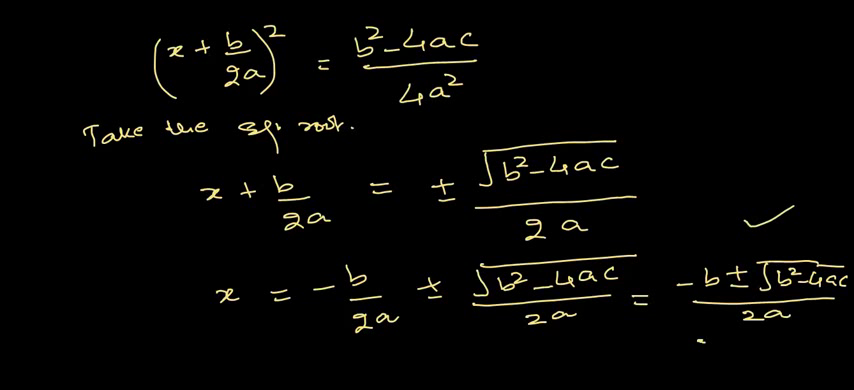 (x + b/2a)² = b²-4ac/4a²
Take the sq. root.
x + b/2a = ± √b²-4ac/2a
x = -b/2a ± √b²-4ac/2a = -b±√b²-4ac/2a